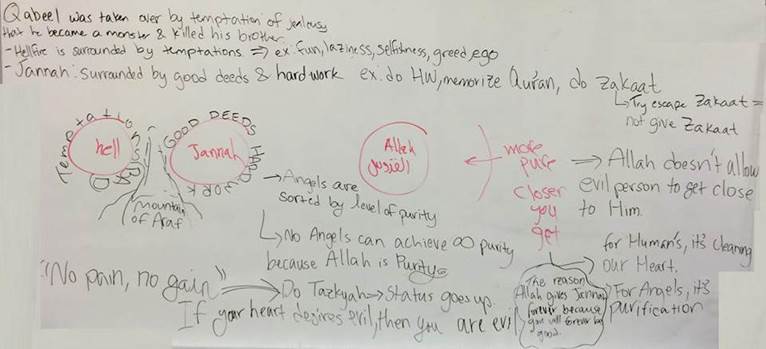 Qabeel was taken over by temptation of jealousy
that he became a monster & killed his brother
- Hellfire is surrounded by temptations => ex. fun, laziness, selfishness, greed, ego
- Jannah: surrounded by good deeds & hard work ex. do HW, memorize Qur'an, do zakaat
Try escape Zakaat =
not give Zakaat
Temptations
BAD
hell
GOOD DEEDS
HARD WORK
Jannah
mountain
of Araf
Allah
القدوس
more
pure
closer
you
get
=> Allah doesn't allow
evil person to get close
to Him.
→ Angels are
sorted by level of purity
No Angels can achieve ∞ purity
because Allah is Purity
for Human's, it's cleaning
our Heart.
For Angels, it's
purification
"No pain, no gain"
Do Tazkyah → Status goes up.
If your heart desires evil, then you are evil
The reason
Allah gives Jannah
forever because
you will forever be
good.